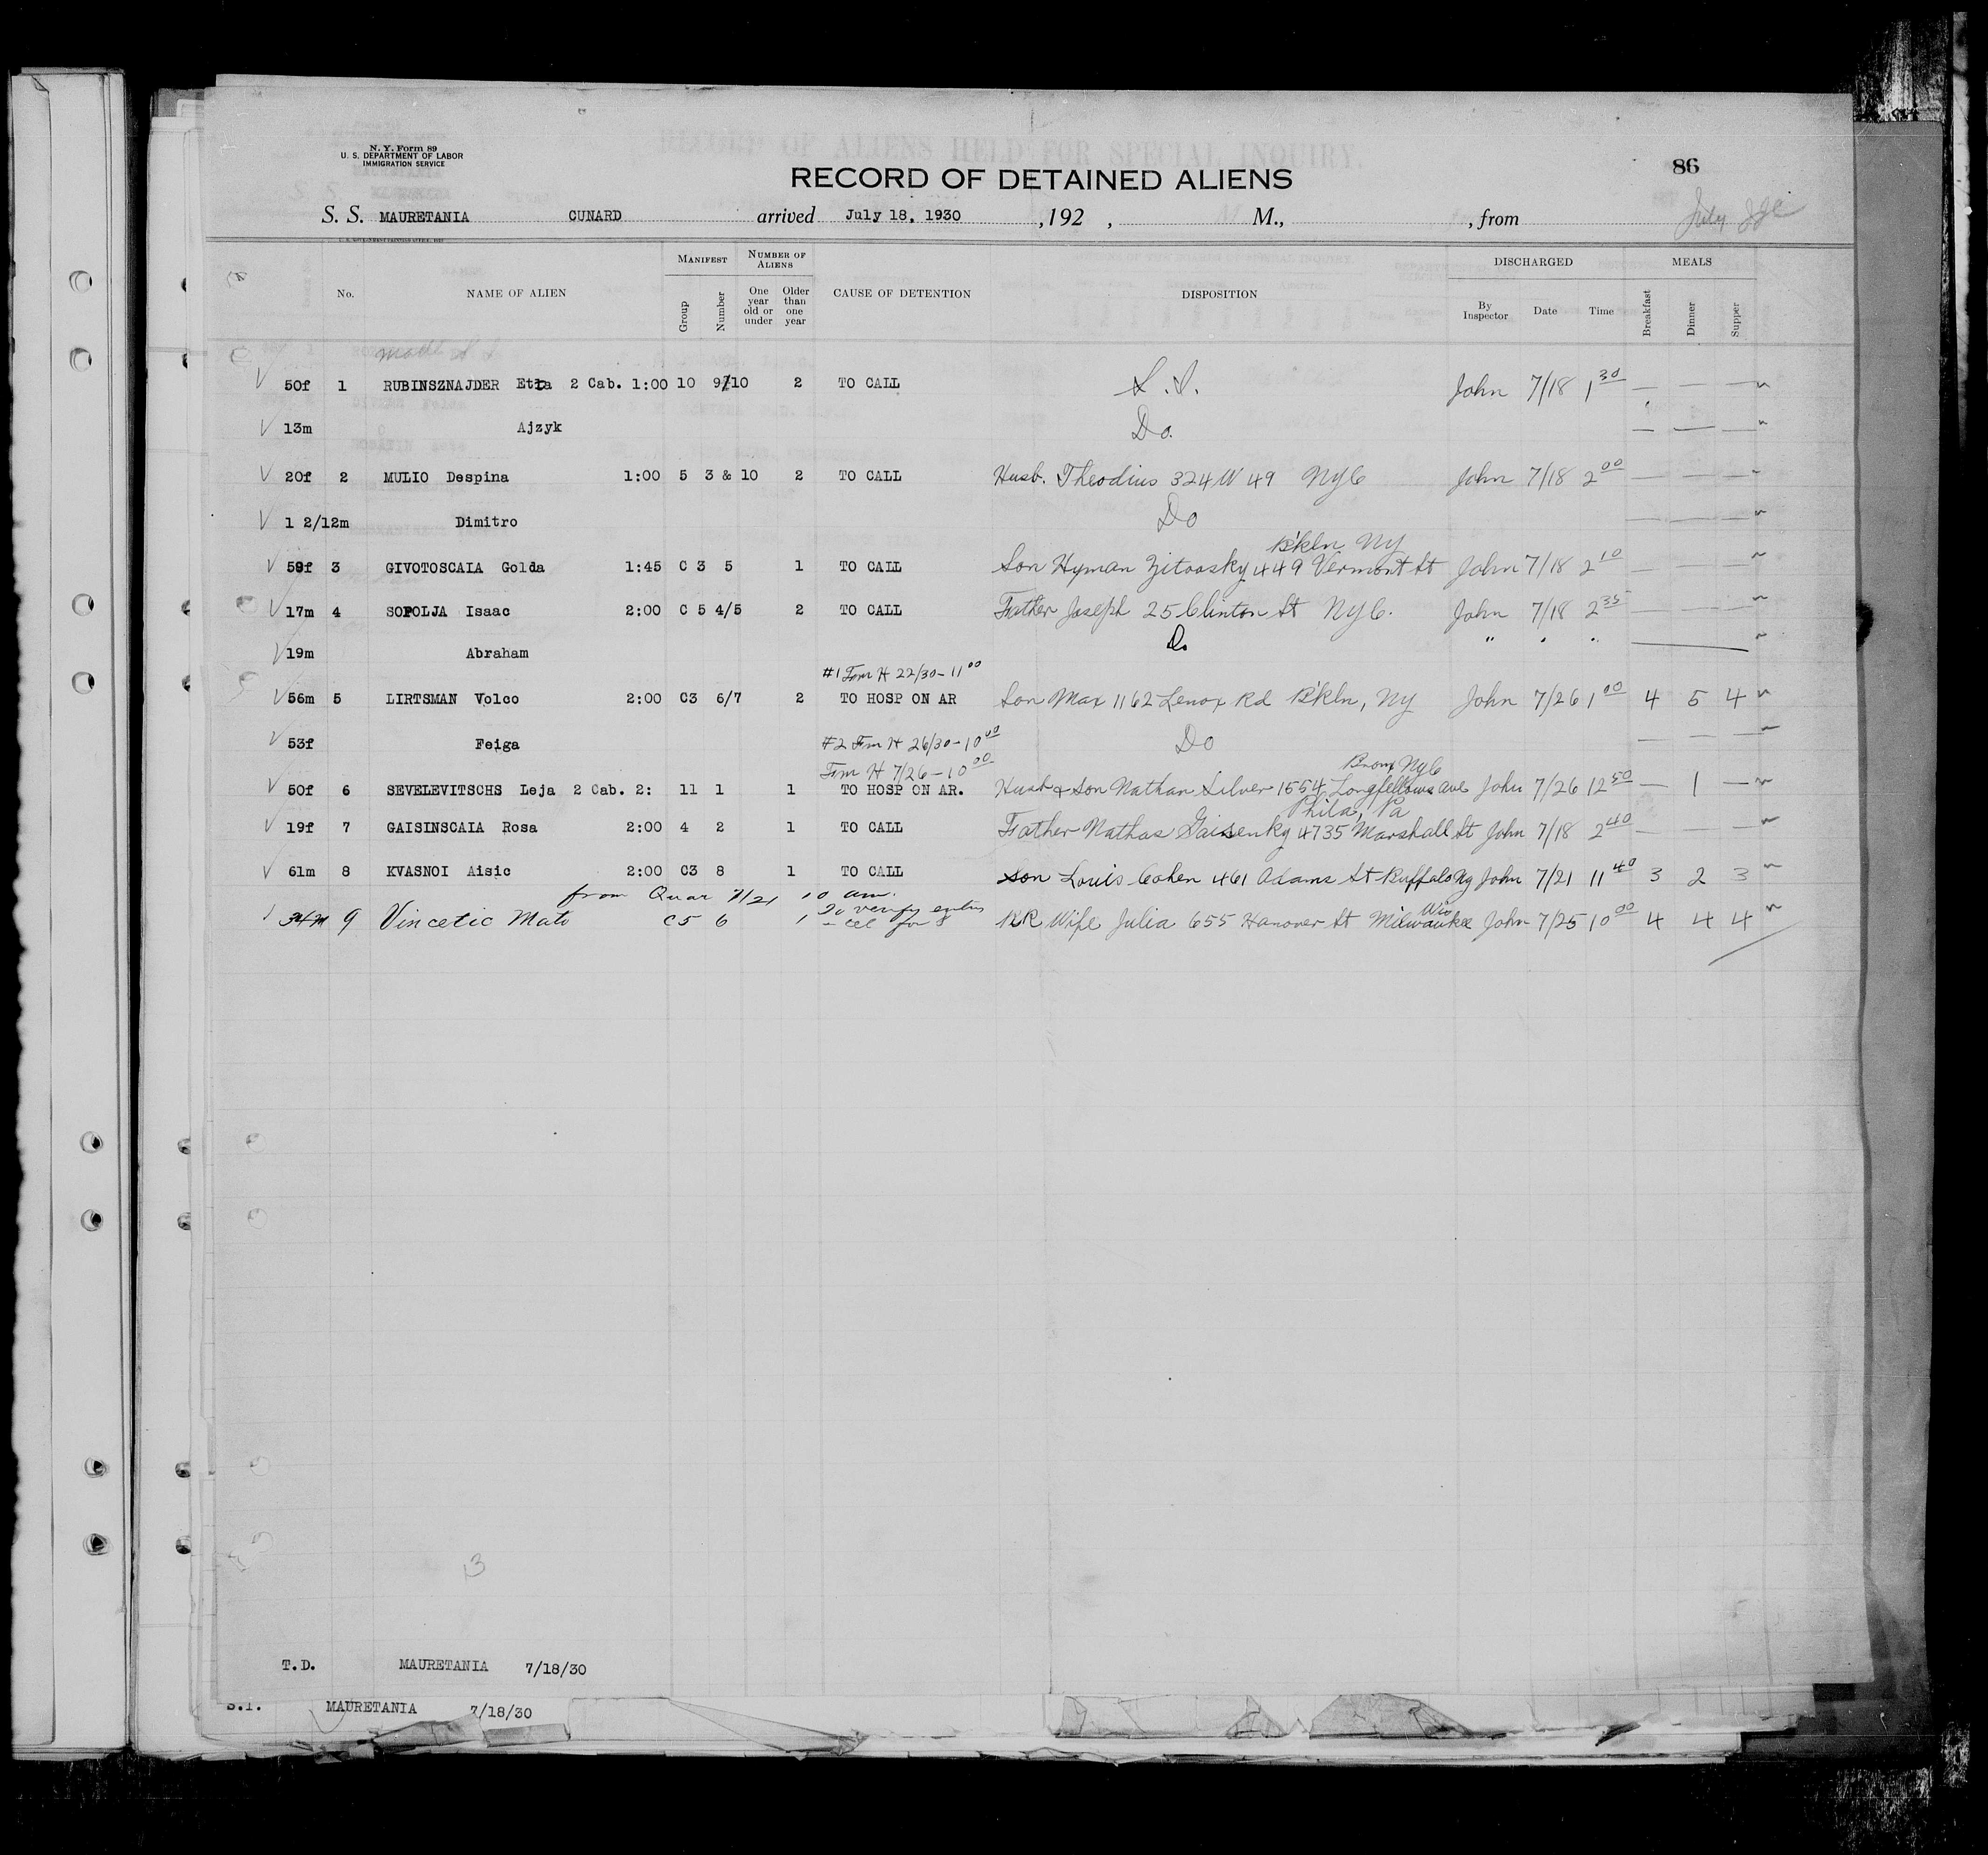 N. Y. Form 89
U. S. DEPARTMENT OF LABOR
IMMIGRATION SERVICE
86
RECORD OF DETAINED ALIENS
S. S. MAURETANIA CUNARD arrived July 18, 1930, 192 , M., , from
July
No. NAME OF ALIEN MANIFEST Group Number NUMBER OF ALIENS One year old or under Older than one year CAUSE OF DETENTION DISPOSITION DISCHARGED By Inspector Date Time MEALS Breakfast Dinner Supper
50f 1 RUBINSZNAJDER Etta 2 Cab. 1:00 10 9/10 2 TO CALL S. I. John 7/18 1 30 — — —
13m Ajzyk Do. — — —
20f 2 MULIO Despina 1:00 5 3 & 10 2 TO CALL Husb. Theodius 324 W 49 NYC John 7/18 2 00 — — —
1 2/12m Dimitro Do — — —
B'kln NY
59f 3 GIVOTOSCAIA Golda 1:45 C 3 5 1 TO CALL Son Hyman Zitovsky 449 Vermont St John 7/18 2 10 — — —
17m 4 SOPOLJA Isaac 2:00 C 5 4/5 2 TO CALL Father Joseph 25 Clinton St NYC. John 7/18 2 35 — — —
19m Abraham Do " " "
#1 Frm H 22/30-11 00
56m 5 LIRTSMAN Volco 2:00 C3 6/7 2 TO HOSP ON AR Son Max 1162 Lenox Rd B'kln, NY John 7/26 1 00 4 5 4
53f Feiga #2 Frm H 26/30-10 00 Do — — —
Frm H 7/26-10 00 Bronx NYC
50f 6 SEVELEVITSCHS Leja 2 Cab. 2: 11 1 1 TO HOSP ON AR. Husb & Son Nathan Silver 1554 Longfellow ave John 7/26 12 50 — 1 —
Phila, Pa
19f 7 GAISINSCAIA Rosa 2:00 4 2 1 TO CALL Father Nathas Gaisenky 4735 Marshall St John 7/18 2 40 — — —
61m 8 KVASNOI Aisic 2:00 C3 8 1 TO CALL son Louis Cohen 461 Adams St Buffalo Ny John 7/21 11 40 3 2 3
from Quar 7/21 10 am. To verify entry
34m 9 Vincetic Mato C5 6 1 RR Wife Julia 655 Hanover St Milwaukee Wis John 7/25 10 00 4 4 4
13
T.D. MAURETANIA 7/18/30
S.I. MAURETANIA 7/18/30